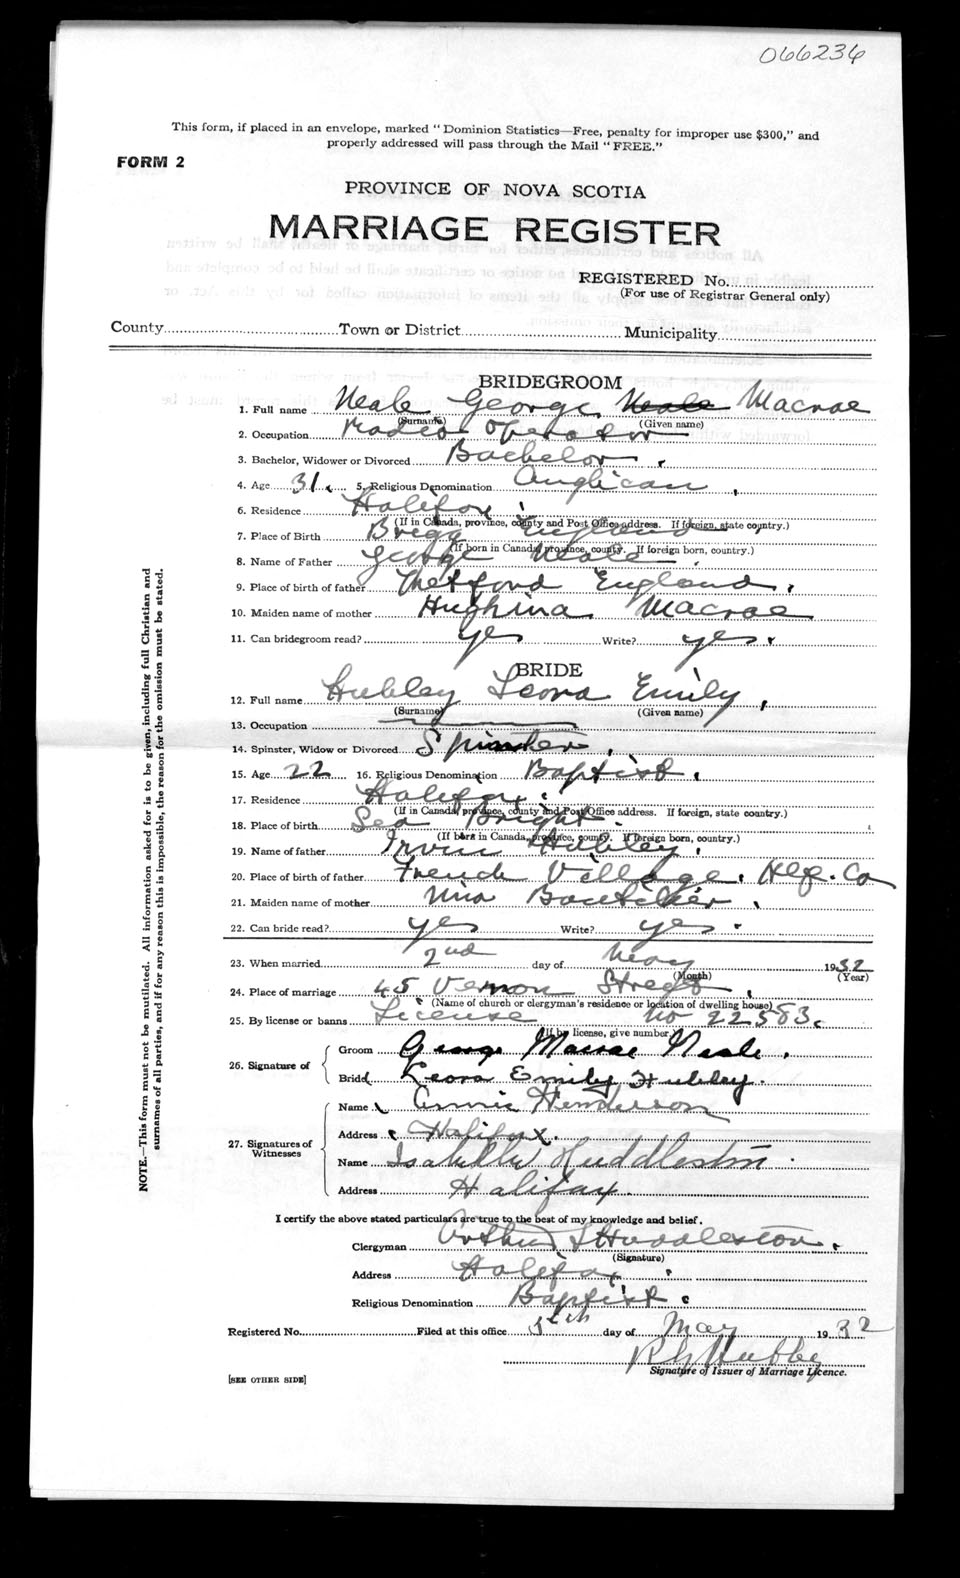 066236
This form, if placed in an envelope, marked "Dominion Statistics—Free, penalty for improper use $300," and
properly addressed will pass through the Mail "FREE."
FORM 2
PROVINCE OF NOVA SCOTIA
MARRIAGE REGISTER
REGISTERED No.
(For use of Registrar General only)
County Town or District Municipality
BRIDEGROOM
1. Full name Neale George Neale Macrae
(Surname) (Given name)
2. Occupation Radio Operator
3. Bachelor, Widower or Divorced Bachelor.
4. Age 31. 5. Religious Denomination Anglican.
6. Residence Halifax
(If in Canada, province, county and Post Office address. If foreign, state country.)
7. Place of Birth Brigg England
(If born in Canada, province, county. If foreign born, country.)
8. Name of Father George Neale.
9. Place of birth of father Thetford England.
10. Maiden name of mother Hughina Macrae
11. Can bridegroom read? yes Write? yes.
BRIDE
12. Full name Hubley Leora Emily,
(Surname) (Given name)
13. Occupation
14. Spinster, Widow or Divorced Spinster.
15. Age 22 16. Religious Denomination Baptist.
17. Residence Halifax.
(If in Canada, province, county and Post Office address. If foreign, state country.)
18. Place of birth Sea Bright.
(If born in Canada, province, county. If foreign born, country.)
19. Name of father Irvin Hubley.
20. Place of birth of father French Village. Hlfx. Co
21. Maiden name of mother Nina Boutilier.
22. Can bride read? yes Write? yes.
23. When married 2nd day of May 1932
(Month) (Year)
24. Place of marriage 45 Vernon Street.
(Name of church or clergyman's residence or location of dwelling house)
25. By license or banns License No 22583.
(If by license, give number)
26. Signature of
Groom George Macrae Neale.
Bride Leora Emily Hubley.
27. Signatures of Witnesses
Name Annie Henderson
Address Halifax.
Name Isabelle Huddleston
Address Halifax.
I certify the above stated particulars are true to the best of my knowledge and belief.
Clergyman Arthur Huddleston.
(Signature)
Address Halifax.
Religious Denomination Baptist.
Registered No. Filed at this office 5th day of May 1932
Hubley
Signature of Issuer of Marriage Licence.
[SEE OTHER SIDE]
NOTE.—This form must not be mutilated. All information asked for is to be given, including full Christian and
surnames of all parties, and if for any reason this is impossible, the reason for the omission must be stated.